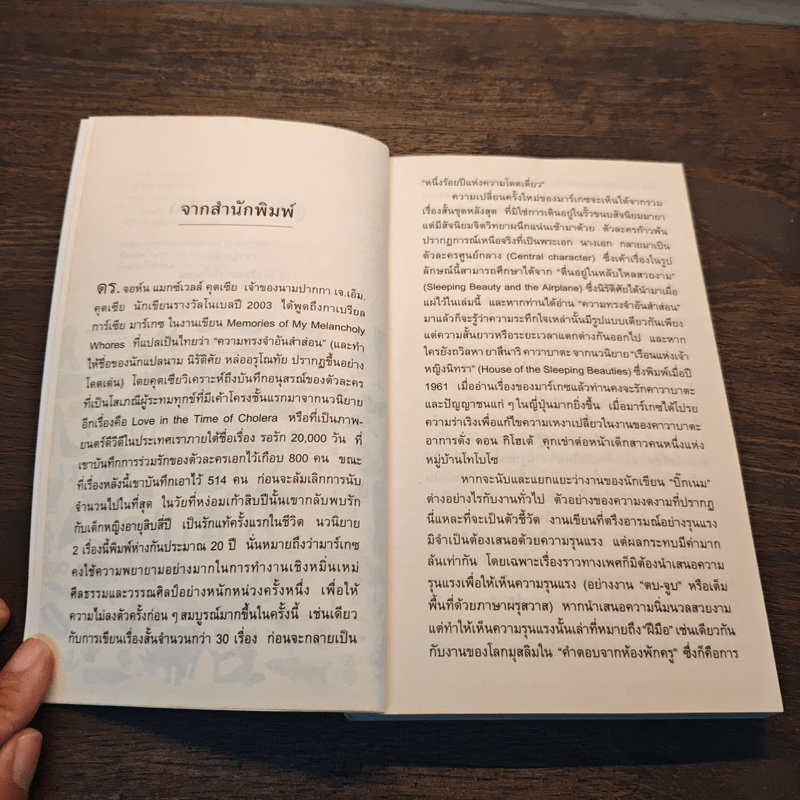 จากสำนักพิมพ์
ดร. จอห์น แมกซ์เวลล์ คุตเซีย เจ้าของนามปากกา เจ.เอ็ม.
คุตเซีย นักเขียนรางวัลโนเบลปี 2003 ได้พูดถึงกาเบรียล
การ์เซีย มาร์เกซ ในงานเขียน Memories of My Melancholy
Whores ที่แปลเป็นไทยว่า “ความทรงจำอันสำส่อน” (และทำ
ให้ชื่อของนักแปลนาม นิรัติศัย หล่ออรุโณทัย ปรากฏขึ้นอย่าง
โดดเด่น) โดยคุตเซียวิเคราะห์ถึงบันทึกอนุสรณ์ของตัวละคร
ที่เป็นโสเภณีผู้ระทมทุกข์ที่มีเค้าโครงชั้นแรกมาจากนวนิยาย
อีกเรื่องคือ Love in the Time of Cholera หรือที่เป็นภาพ-
ยนตร์ดีวีดีในประเทศเราภายใต้ชื่อเรื่อง รอรัก 20,000 วัน ที่
เขาบันทึกการร่วมรักของตัวละครเอกไว้เกือบ 800 คน ขณะ
ที่เรื่องหลังนี้เขาบันทึกเอาไว้ 514 คน ก่อนจะล้มเลิกการนับ
จำนวนไปในที่สุด ในวัยที่หง่อมเก้าสิบปีนั้นเขากลับพบรัก
กับเด็กหญิงอายุสิบสี่ปี เป็นรักแท้ครั้งแรกในชีวิต นวนิยาย
2 เรื่องนี้พิมพ์ห่างกันประมาณ 20 ปี นั่นหมายถึงว่ามาร์เกซ
คงใช้ความพยายามอย่างมากในการทำงานเชิงหมิ่นเหม่
ศีลธรรมและวรรณศิลป์อย่างหนักหน่วงครั้งหนึ่ง เพื่อให้
ความไม่ลงตัวครั้งก่อน ๆ สมบูรณ์มากขึ้นในครั้งนี้ เช่นเดียว
กับการเขียนเรื่องสั้นจำนวนกว่า 30 เรื่อง ก่อนจะกลายเป็น
“หนึ่งร้อยปีแห่งความโดดเดี่ยว”
ความเปลี่ยนครั้งใหม่ของมาร์เกซจะเห็นได้จากรวม
เรื่องสั้นชุดหลังสุด ที่มิใช่การเดินอยู่ในรั้วขนบสัจนิยมมายา
แต่มีสัจนิยมจิตวิทยาผนึกแน่นเข้ามาด้วย ตัวละครก้าวพ้น
ปรากฏการณ์เหนือจริงที่เป็นพระเอก นางเอก กลายมาเป็น
ตัวละครศูนย์กลาง (Central character) ซึ่งเค้าเรื่องในรูป
ลักษณ์นี้สามารถศึกษาได้จาก “ตื่นอยู่ในหลับใหลสวยงาม”
(Sleeping Beauty and the Airplane) ซึ่งนิรัติศัยได้นำมาเผื่อ
แผ่ไว้ในเล่มนี้ และหากท่านได้อ่าน “ความทรงจำอันสำส่อน”
มาแล้วก็จะรู้ว่าความระทึกใจเหล่านั้นมีรูปแบบเดียวกันเพียง
แต่ความสั้นยาวหรือระยะเวลาแตกต่างกันออกไป และหาก
ใครยังถวิลหา ยาสึนาริ คาวาบาตะ จากนวนิยาย “เรือนแห่งเจ้า
หญิงนิทรา” (House of the Sleeping Beauties) ซึ่งพิมพ์เมื่อปี
1961 เมื่ออ่านเรื่องของมาร์เกซแล้วท่านคงจะรักคาวาบาตะ
และปัญญาชนแก่ ๆ ในญี่ปุ่นมากยิ่งขึ้น เมื่อมาร์เกซได้โปรย
ความร่าเริงเพื่อแก้ไขความเหงาเปลี่ยวในงานของคาวาบาตะ
อาการดั่ง ดอน กิโฮเต้ คุกเข่าต่อหน้าเด็กสาวคนหนึ่งแห่ง
หมู่บ้านโทโบโซ
หากจะนับและแยกแยะว่างานของนักเขียน “บิ๊กเนม”
ต่างอย่างไรกับงานทั่วไป ตัวอย่างของความงดงามที่ปรากฏ
นี่แหละที่จะเป็นตัวชี้วัด งานเขียนที่ตรึงอารมณ์อย่างรุนแรง
มิจำเป็นต้องเสนอด้วยความรุนแรง แต่ผลกระทบมีค่ามาก
ล้นเท่ากัน โดยเฉพาะเรื่องราวทางเพศก็มิต้องนำเสนอความ
รุนแรงเพื่อให้เห็นความรุนแรง (อย่างงาน “ตบ-จูบ” หรือเต็ม
พื้นที่ด้วยภาษาผรุสวาส) หากนำเสนอความนิ่มนวลสวยงาม
แต่ทำให้เห็นความรุนแรงนั้นเล่าที่หมายถึง“ฝีมือ” เช่นเดียวกัน
กับงานของโลกมุสลิมใน “คำตอบจากห้องพักครู” ซึ่งก็คือการ